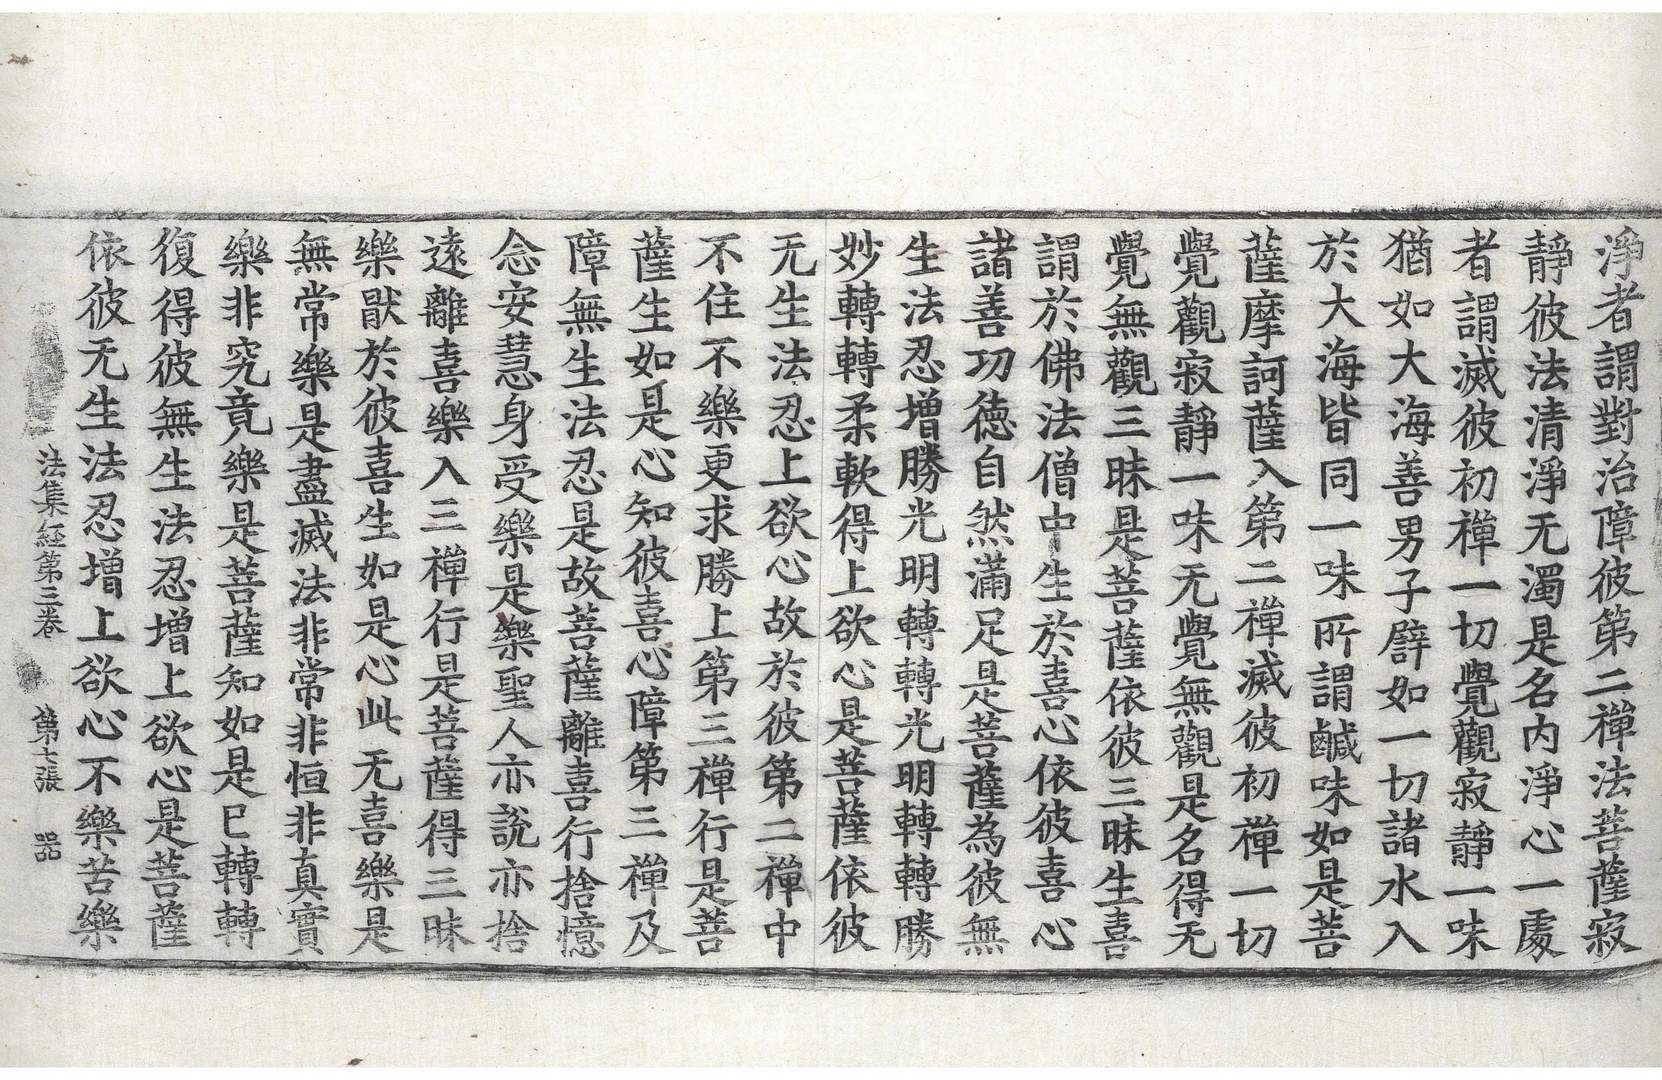 淨者謂對治障彼第二禪法菩薩寂
靜彼法清淨无濁是名內淨心一處
者謂滅彼初禪一切覺觀寂靜一味
猶如大海善男子譬如一切諸水入
於大海皆同一味所謂鹹味如是菩
薩摩訶薩入第二禪滅彼初禪一切
覺觀寂靜一味无覺無觀是名得无
覺無觀三昧是菩薩依彼三昧生喜
謂於佛法僧中生於喜心依彼喜心
諸善功德自然滿足是菩薩為彼無
生法忍增勝光明轉轉光明轉轉勝
妙轉轉柔軟得上欲心是菩薩依彼
无生法忍上欲心故於彼第二禪中
不住不樂更求勝上第三禪行是菩
薩生如是心知彼喜心障第三禪及
障無生法忍是故菩薩離喜行捨憶
念安慧身受樂是樂聖人亦說亦捨
遠離喜樂入三禪行是菩薩得三昧
樂猒於彼喜生如是心此无喜樂是
無常樂是盡滅法非常非恒非真實
樂非究竟樂是菩薩知如是已轉轉
復得彼無生法忍增上欲心是菩薩
依彼无生法忍增上欲心不樂苦樂
法集経第三卷 第七張 器